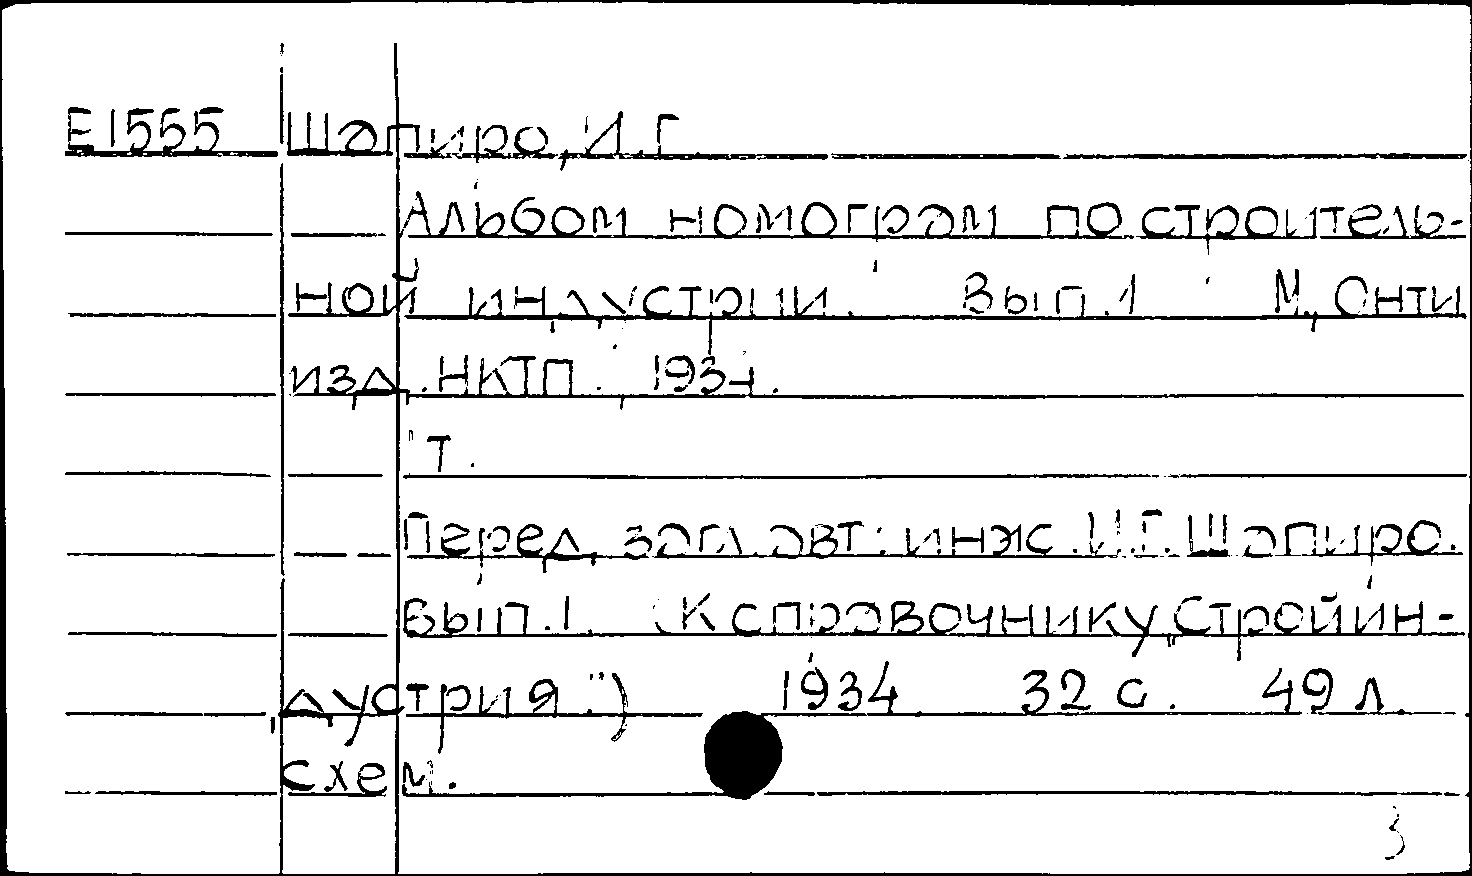 Е1555 Шапиро, И.Г.
Альбом номограм по строитель-
ной индустрии. Вып.1 М., Онти
изд. НКТП, 193-.
Т.
Перед. загл. авт: инж. И.Г. Шапиро.
Вып.1. (К справочнику „Стройин-
дустрия.") 1934. 32 с. 49 л.
схем.
3